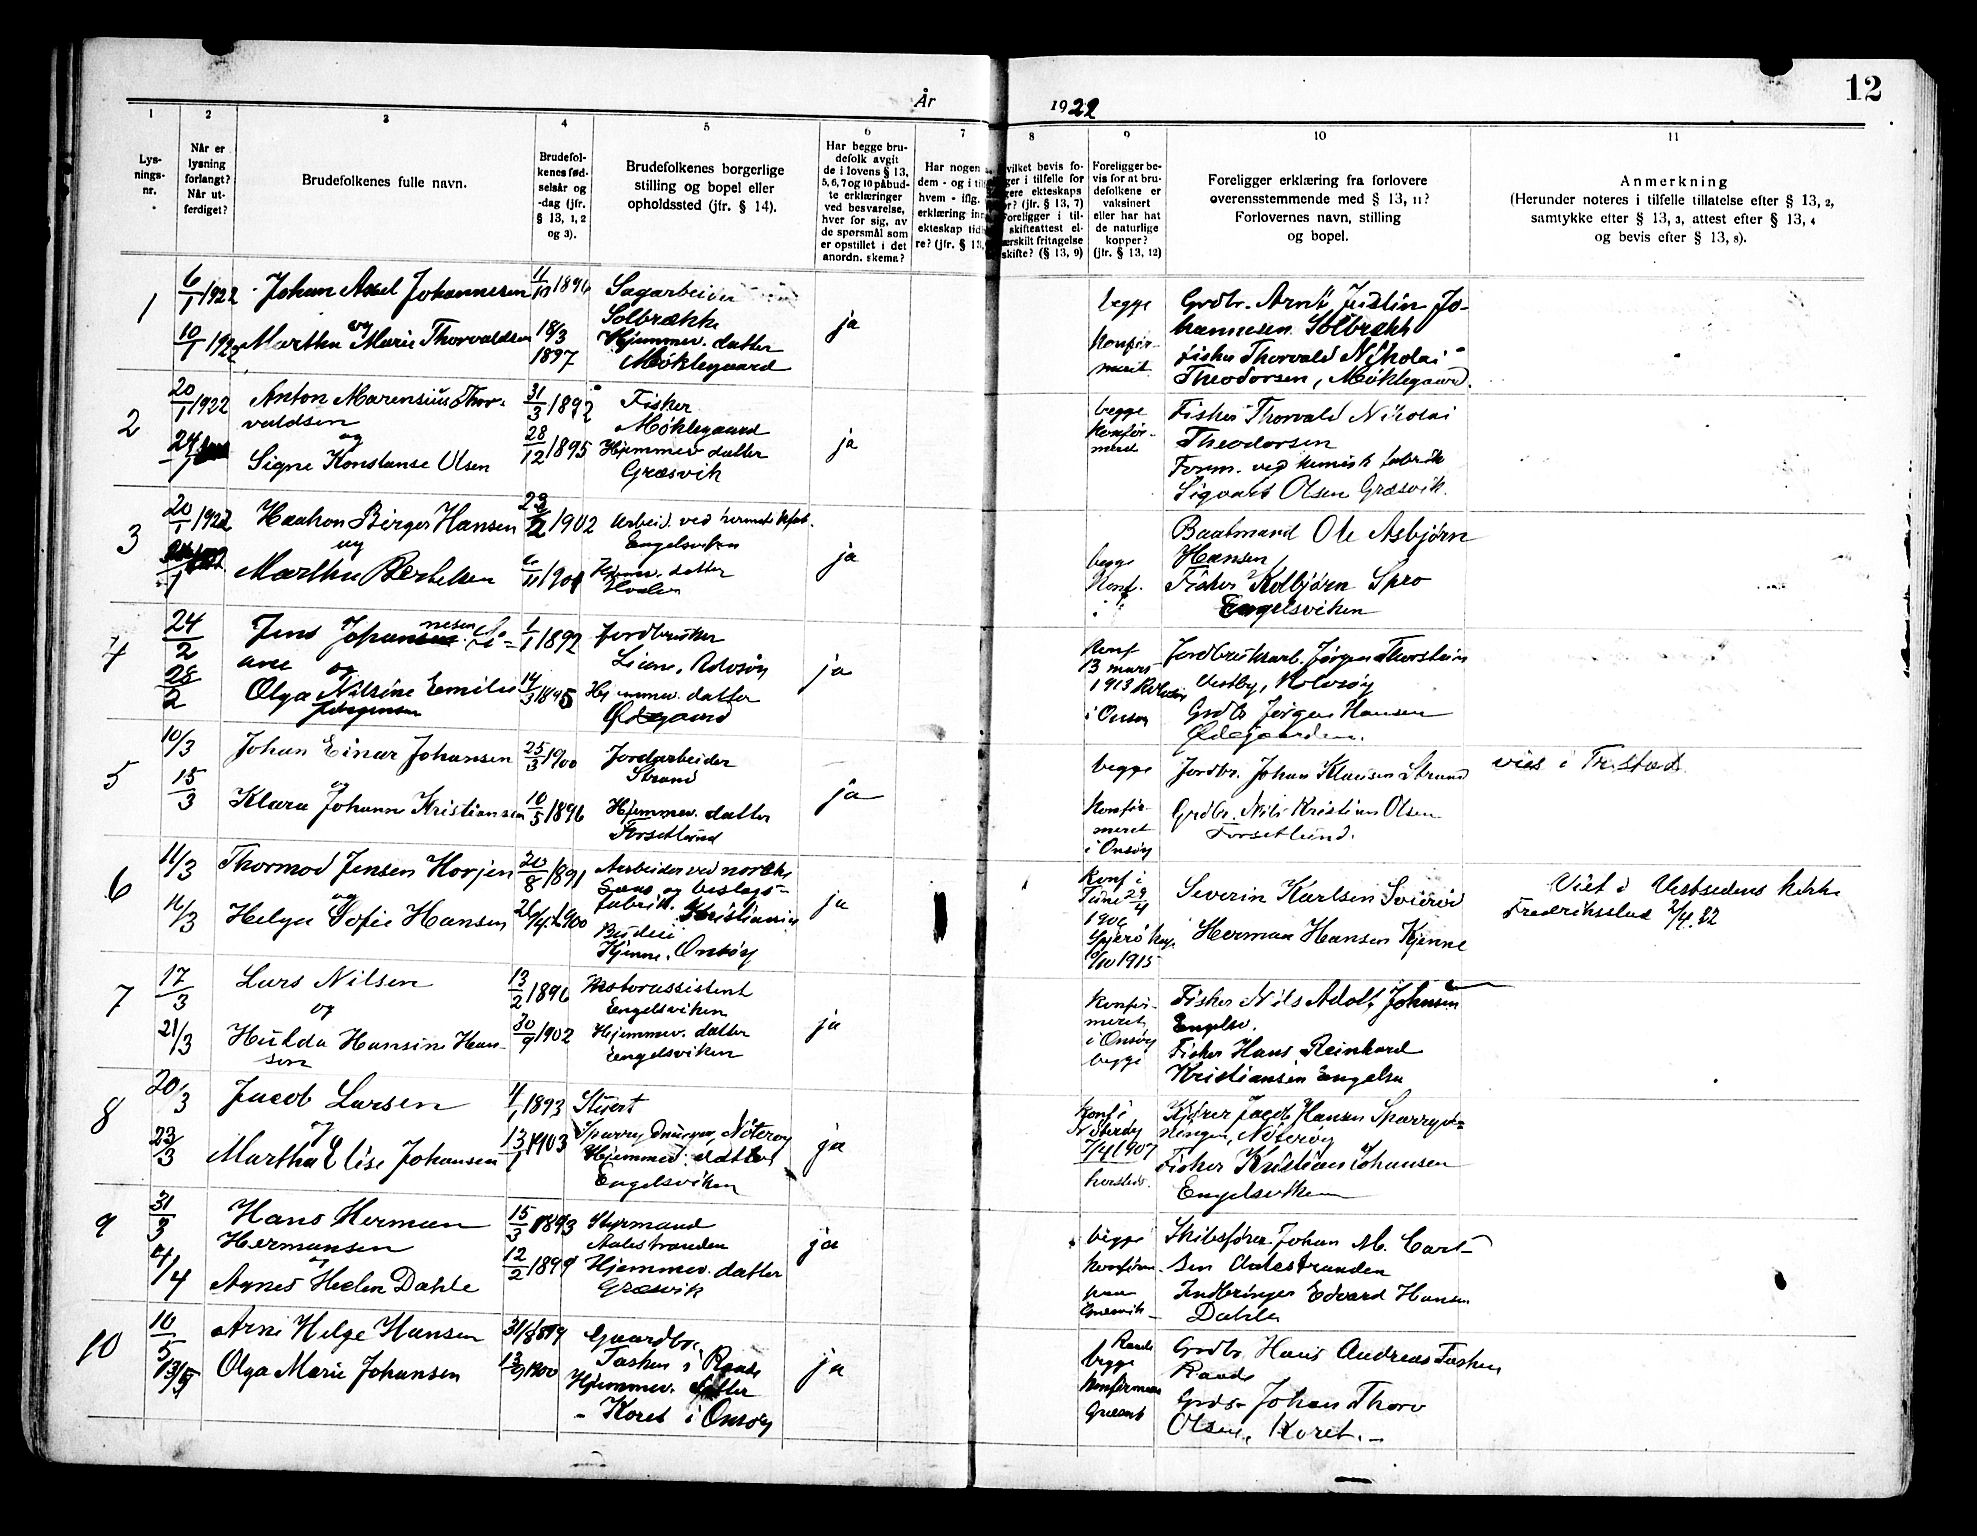 12
År
1922
1
2
3
4
5
6
7
8
9
10
11
Lys-
nings-
nr.
Når er
lysning
forlangt?
Når ut-
ferdiget?
Brudefolkenes fulle navn.
Brudefol-
kenes fød-
selsår og
-dag (jfr.
§ 13, 1, 2
og 3).
Brudefolkenes borgerlige
stilling og bopel eller
opholdssted (jfr. § 14).
Har begge bru-
defolk avgit
de i lovens § 13,
5, 6, 7 og 10 påbud-
te erklæringer
ved besvarelse,
hver for sig, av
de spørsmål som
er opstillet i det
anordn. skema?
Har nogen
dem - og i til
hvem - iflg.
erklæring inn
ekteskap tid
re? (jfr. § 13,
vilket bevis fo-
ger i tilfelle for
gere ekteskaps
or? (jfr. § 13, 7)
Foreligger i til-
skifteattest el-
ærskilt fritagelse
skifte? (§ 13, 9)
Foreligger be-
vis for at bru-
defolkene er
vaksinert
eller har hat
de naturlige
kopper?
(jfr. § 13, 12)
Foreligger erklæring fra forlovere
overensstemmende med § 13, 11?
Forlovernes navn, stilling
og bopel.
Anmerkning
(Herunder noteres i tilfelle tillatelse efter § 13, 2,
samtykke efter § 13, 3, attest efter § 13, 4
og bevis efter § 13, 8).
1
6/1 1922
10/1 1922
Johan Axel Johannesen
og
Martha Marie Thorvaldsen
1896
18/3
1897
Sagarbeider
Solbrække
Hjemmev. datter
Møklegaard
ja
begge
Konfir-
meret
Grdbr. Arnt Justin Jo-
hannesen Solbrækk
Fisker Thorvald Nikolai
Theodorsen, Møklegaard.
2
20/1 1922
24/1
Anton Marensius Thor-
valdsen
og
Signe Konstanse Olsen
31/3 1892
28/12 1895
Fisker
Møklegaard
Hjemmev datter
Græsvik
ja
begge
Konfir-
mert
Fisker Thorvald Nikolai
Theodorsen
Form. ved kemisk fabrik
Sigvart Olsen Græsvik.
3
20/1 1922
Haakon Birger Hansen
og
Martha Bertelsen
1902
Arbeid. ved hermetikfab.
Engelsviken
Hjemv. datter
Hvaler
ja
begge
Konf.
Baatmand Ole Asbjørn
Hansen
Fisker Kolbjørn Spro
Engelsviken
4
24/2
28/2
Jens Johannesen Li-
ane og
Olga Nilsine Emilie
Jørgensen
1/1 1892
Jordbruker
Liane, Rolvsøy
Hjemmev. datter
Ødegaard
ja
Konf
13 mars
1913 Rolvsøy
i Onsøy
Jordbrukarb. Jørgen Thorstein
Vestby, Rolvsøy
Grdb Jørgen Hansen
Ødegaarden.
5
10/3
15/3
Johan Einar Johansen
og
Klara Johanne Kristiansen
25/3 1900
10/5 1896
Jordarbeider
Strand
Hjemmev. datter
Forsetlund
ja
begge
Konfir-
meret
i Onsøy
Jordbr. Johan Klausen Strand
Grdbr. Nils Kristian Olsen
Forsetlund.
vies i Fr.stad
6
11/3
16/3
Thormod Jensen Horjen
og
Helga Sofie Hansen
20/8 1891
26/4 1900
Arbeider ved norske
Saus og beslags-
fabrik. Kristiania
Budeie
Kjenne, Onsøy
ja
Konf i
Tune 29/4
1906
/10 1915
Severin Karlsen
Herman Hansen Kjenne
Viet i Vestsidens kirke
Fredriksstad 2/4.22
7
17/3
21/3
Lars Nilsen
og
Hulda Hansine Han-
sen
13/2 1896
30/9 1902
Motorassistent
Engelsviken
Hjemmev. datter
Engelsviken
ja
Konfir-
meret
i Onsøy
begge
Fisker Nils Adolf Johnsen
Engelsv.
Fisker Hans Reinhard
Kristiansen Engelsv
8
20/3
23/3
Jacob Larsen
og
Martha Elise Johansen
1893
13/1 1903
Stuert
Nøterøy
Hjemmev. datter
Engelsviken
ja
Konf i
Nøterøy
7/4 1907
Jacob Hansen
Nøterøy
Fisker Kristian Johansen
Engelsviken
9
31/3
4/4
Hans Herman
Hermansen
og
Agnes Helen Dahle
15/3 1893
12/2 1899
Styrmand
Aalestranden
Hjemmev. datter
Græsvik
ja
begge
Konfirm.
paa
Græsvik
Skibsfører Johan M. Carl-
sen Aalestranden
Indbringer Edvard Hansen
Dahle
10
10/5
13/5
Arne Helge Hansen
Olga Marie Johansen
13/9 1900
Gaardbr.
Tasken i Raade
Hjemmev. datter
Koret i Onsøy
ja
Raade
begge
Konfirmer
Grdbr. Hans Andreas Tasken
Raade
Grdb. Johan Thorv
Olsen, Koret.